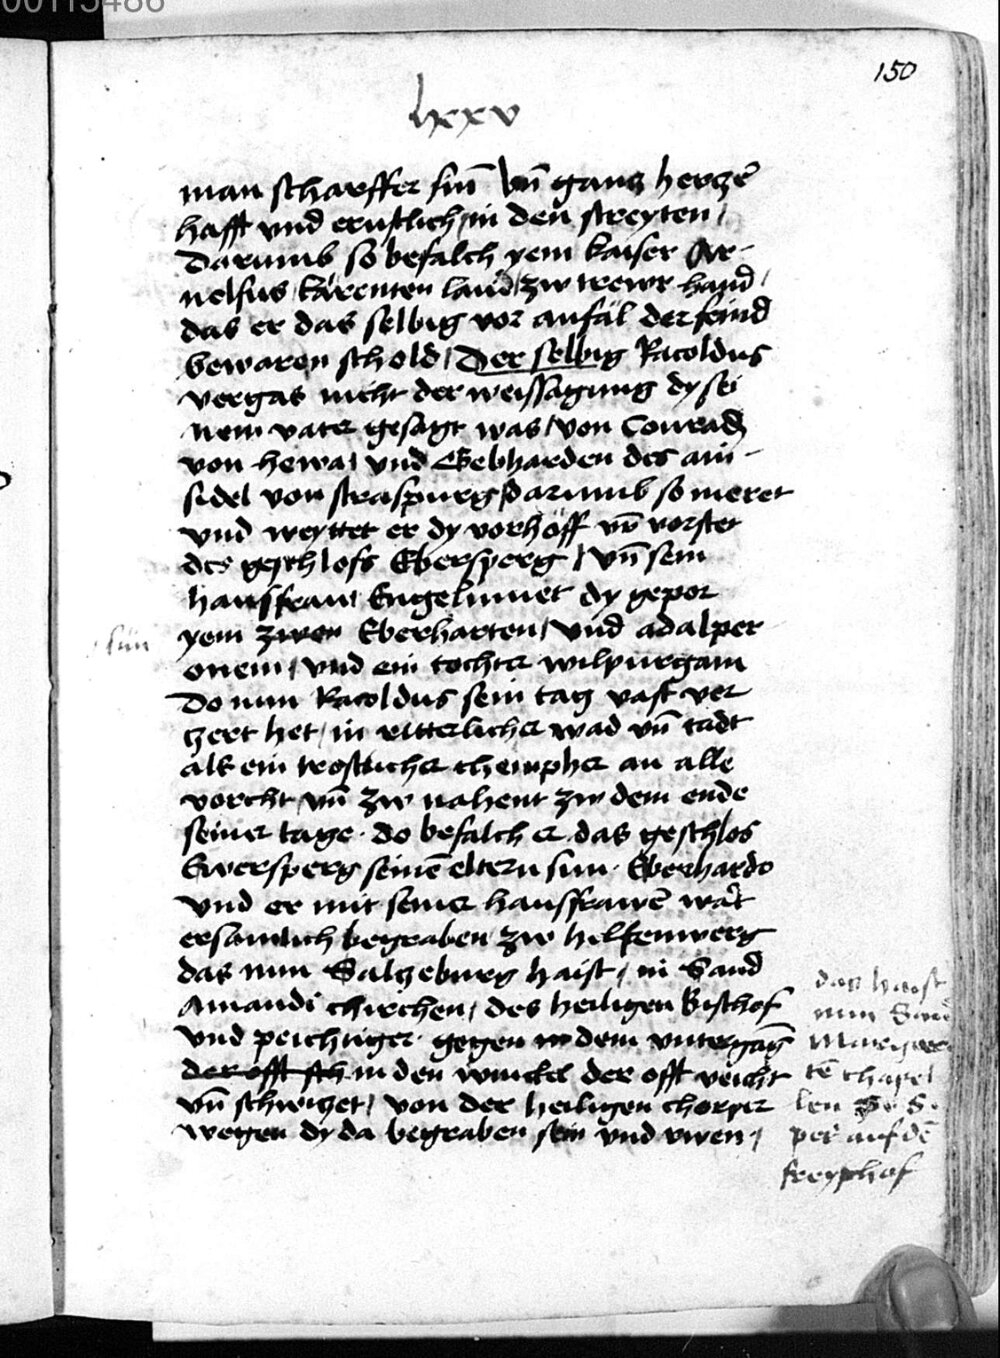 00115486
150
lxxv
man scharffer sin̄ vn̄ gantz hertzē
hafft vnd ernstlich / in den streyten /
Darumb so befalch yem kaiser Ar-
nelfus / karenten land / zw trewr hand /
das er das selbig vor anfäl der feind
bewaren schold / Der selbig Ratoldus
vergas nicht der weissagung dy sei
nem vater gesagt was / von Conrad
von hewa / vnd Gebharden des ain-
sidel von straspurg / darumb so meret
vnd weyttet er dy vorhöff vn̄ vorstet
des geschlofs Ebersperg / vn̄ sein
hausfraw Engelmuet dy gepor
yem zwen Eberharten / vnd adalper
sün
onem / vnd ein tochter wilpurgam
Do nun Ratoldus sein tag vast ver
tzert het / in ritterlicher wad vn̄ tadt
als ein trostlicher chempher an alle
vorcht vn̄ zw nahent zw dem ende
seiner tage · do befalch er das geschlos
Ewersperg seinē eltern sun · Eberhardo
vnd er mit seiner hausfrawē wart
ersamlich begraben zw helfenwerg
das nun Saltzeburg haist / in Sand
Amandi chirchen / des heiligen Bischof
vnd peichtiger · gegen in dem vntergāg
der offt sch in den winckel der offt veicht
vn̄ schwitzet / von der heiligen chorper
wegen dy da begraben sein vnd rwen /
das haist
nun Sand
Margare
tē chapel
len zw S.
per auf dē
freythof